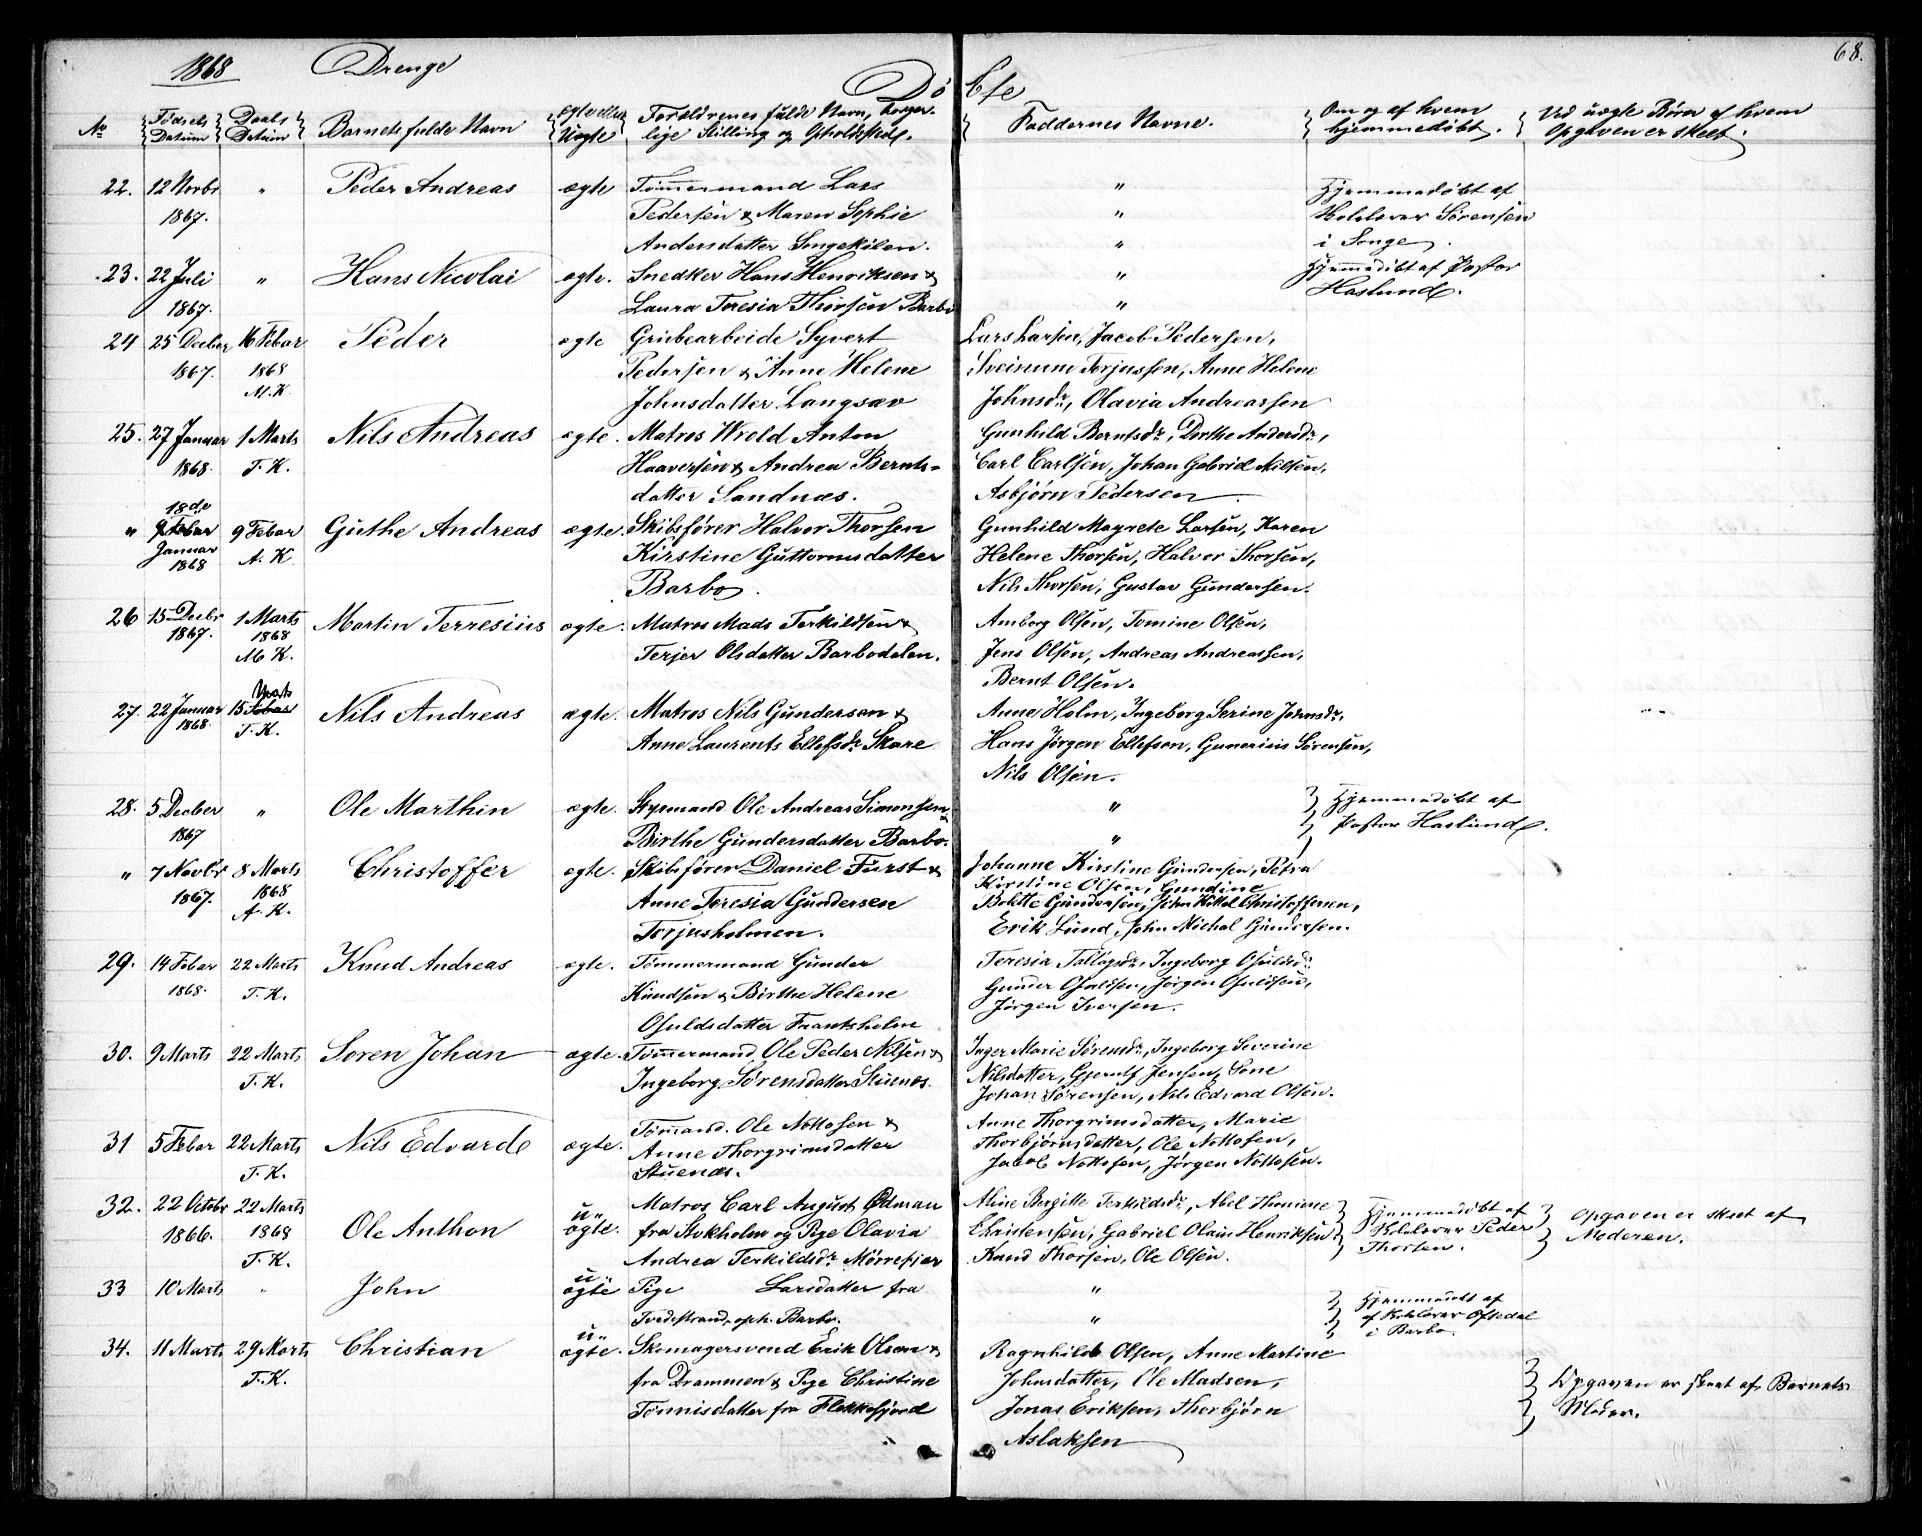 1868 Drenge Døbte 68.
No Fødsels Datum Daabs Datum Barnets fulde Navn Ægte eller Uægte Forældrenes fulde Navn, borgerlige Stilling og Opholdssted. Faddernes Navne. Om og af hvem hjemmedøbt. Ved uægte Børn af hvem Opgaven er skeet.
22. 12 Novbr 1867. " Peder Andreas ægte Tømmermand Lars
Pedersen & Maren Sophie
Andersdatter Songekilen.
" " "
Hjemmedøbt af
Kirkesanger Sørensen
i Songe.
23. 22 Juli 1867. " Hans Nicolai ægte. Snedker Hans Henriksen &
Laura Teresia Thorsen Barbo
" "
Hjemmedøbt af Pastor
Haslund.
24 25 Decber 1867. 16 Febar 1868 M.K. Peder ægte Grubearbeide Syvert
Pedersen & Anne Helene
Johnsdatter Langsæv
Lars Larsen, Jacob Pedersen,
Sveinum Terjussen, Anne Helene
Johnsdr, Olavia Andreassen
25. 27 Januar 1868. 1 Marts T.K. Nils Andreas ægte. Matros Wrold Anton
Haaversen & Andrea Bernts-
datter Sandnæs.
Gunhild Berntsdr, Dorthe Andersdr,
Carl Carlsen, Johan Gabriel Nilsen,
Asbjørn Pedersen.
" 18de Januar 1868 9 Febar A.K. Guthe Andreas ægte. Skibsfører Halvor Thorsen
Kirstine Guttormsdatter
Barbo.
Gunhild Magrete Larsen, Karen
Helene Thorsen, Halvor Thorsen,
Nils Thorsen, Gustav Gundersen.
26 15 Decbr 1867. 1 Marts 1868 M.K. Martin Terresius ægte. Matros Mads Terkildsen &
Terjer Olsdatter Barbodalen.
Amborg Olsen, Tomine Olsen,
Jens Olsen, Andreas Andreassen,
Bernt Olsen.
27. 22 Januar 1868. 15 Marts T.K. Nils Andreas ægte. Matros Nils Gundersen &
Anne Laurents Ellefsdr Skare
Anne Holm, Ingeborg Serine Johnsdr,
Hans Jørgen Ellefsen, Gunerius Sørensen,
Nils Olsen.
28. 5 Decber 1867 " Ole Marthin ægte. Styrmand Ole Andreas Simonsen &
Birthe Gundersdatter Barbo.
" "
Hjemmedøbt af
Pastor Haslund.
" 7 Novbr 1867. 8 Marts 1868 A.K. Christoffer ægte. Skibsfører Daniel Furst &
Anne Teresia Gundersen
Torjusholmen.
Johanne Kirstine Gundersen, Petra
Kirstine Olsen, Gundine
Bolette Gundersen, John Kittel Christoffersen,
Erik Lund, John Michal Gundersen.
29. 14 Febar 1868. 22 Marts T.K. Knud Andreas ægte. Tømmermand Gunder
Knudsen & Birthe Helene
Osuldsdatter Frantsholm
Teresia Tallagsdr, Ingeborg Osuldsdr
Gunder Osuldsen, Jørgen Osuldsen,
Jørgen Iversen.
30. 9 Marts 22 Marts T.K. Søren Johan ægte. Tømmermand Ole Peder Nilsen &
Ingeborg Sørensdatter Stuenes.
Inger Marie Sørensdr, Ingeborg Severine
Nilsdatter, Gjerulf Jensen, Sone
Johan Sørensen, Nils Edvard Olsen.
31 5 Febar 22 Marts T.K. Nils Edvarde ægte. Tømand. Ole Nottosen &
Anne Thorgrimsdatter
Stuenes.
Anne Thorgrimsdatter, Marie
Thorbjørnsdatter, Ole Nottosen,
Jacob Nottosen, Jørgen Nottosen.
32. 22 Octobr 1866. 22 Marts 1868 T.K. Ole Anthon u-ægte. Matros Carl August Ødman
fra Stokholm og Pige Olavia
Andrea Terkildsdr Mørrefjær
Aline Bergitte Terkildsdr, Abel Thomine
Christensen, Gabriel Olaus Henriksen
Knud Thorsen, Ole Olsen.
Hjemmedøbt af
Kirkesanger Peder
Thorsen.
Opgaven er skeet af
Moderen.
33 10 Marts " John u-ægte Pige Larsdatter fra
Tvedestrand, oph. Barbo.
" "
Hjemmedøbt af
af Kirkesanger Oftedal
i Barbo.
34. 11 Marts 29 Marts T.K. Christian u-ægte. Skomagersvend Erik Olsen &
fra Drammen & Pige Christine
Tønnisdatter fra Flekkefjord
Ragnhild Olsen, Anne Martine
Johnsdatter, Ole Madsen,
Jonas Eriksen, Thorbjørn
Aslaksen
Opgaven er skeet af Barnets
Moder.